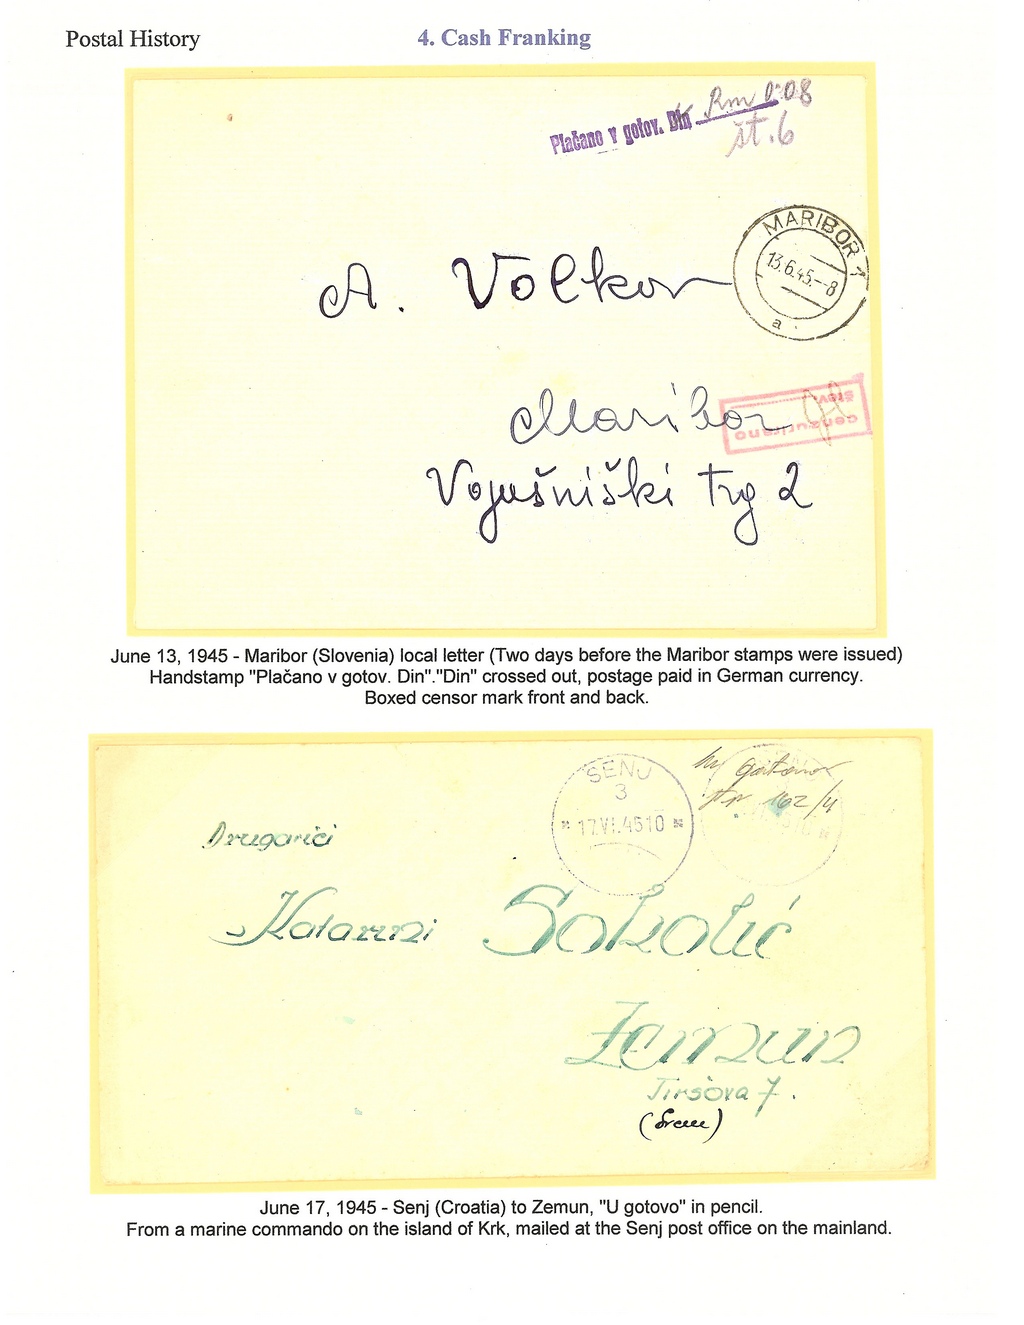 Postal History
4. Cash Franking
Plačano v gotov. Din Rm 0.08
št. 6
MARIBOR 1
13.6.45.-8
a
A. Volkov
Maribor
cenzurirano
štev.
Vojušniški trg 2
June 13, 1945 - Maribor (Slovenia) local letter (Two days before the Maribor stamps were issued)
Handstamp "Plačano v gotov. Din"."Din" crossed out, postage paid in German currency.
Boxed censor mark front and back.
SENJ
3
17.VI.45 10
U gotovo
162/4
Drugarici
Katarini Sokolić
Zemun
Tiršova 7.
(Srem)
June 17, 1945 - Senj (Croatia) to Zemun, "U gotovo" in pencil.
From a marine commando on the island of Krk, mailed at the Senj post office on the mainland.